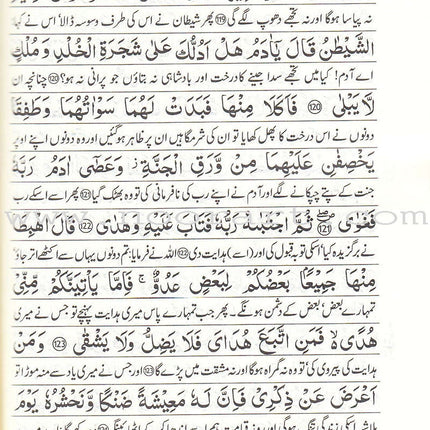 نہ پیاسا ہوگا اور نہ تجھے دھوپ لگے گی ⑲ پھر شیطان نے اس کی طرف وسوسہ ڈالا اس نے کہا
الشَّيْطٰنُ قَالَ يٰٓاٰدَمُ هَلْ اَدُلُّكَ عَلٰى شَجَرَةِ الْخُلْدِ وَمُلْكٍ
اے آدم! کیا میں تجھے سدا جینے کا درخت اور بادشاہی نہ بتاؤں جو پرانی نہ ہو؟ چنانچہ ان
لَّا يَبْلٰى ۝۱۲۰ فَاَكَلَا مِنْهَا فَبَدَتْ لَهُمَا سَوْاٰتُهُمَا وَطَفِقَا
دونوں نے اس درخت کا پھل کھایا تو ان کی شرمگاہیں ان پر ظاہر ہوگئیں اور وہ دونوں اپنے اوپر
يَخْصِفٰنِ عَلَيْهِمَا مِنْ وَّرَقِ الْجَنَّةِ ۡ وَعَصٰٓى اٰدَمُ رَبَّهٗ
جنت کے پتے چپکانے لگے اور آدم نے اپنے رب کی نافرمانی کی تو وہ بھٹک گیا پھر اسے اسکے رب
فَغَوٰى ۝۱۲۱ ثُمَّ اجْتَبٰهُ رَبُّهٗ فَتَابَ عَلَيْهِ وَهَدٰى ۝۱۲۲ قَالَ اهْبِطَا
نے برگزیدہ کیا اسکی توبہ قبول کی اور (اسے) ہدایت دی اللہ نے فرمایا: تم دونوں یہاں سے اکٹھے اتر جاؤ
مِنْهَا جَمِيْعًۢا بَعْضُكُمْ لِبَعْضٍ عَدُوٌّ ۚ فَاِمَّا يَاْتِيَنَّكُمْ مِّنِّيْ
تمہارے بعض بعض کے دشمن ہونگے۔ پھر جب تمہارے پاس میری ہدایت پہنچے تو جس نے میری
هُدًى ۙ فَمَنِ اتَّبَعَ هُدَايَ فَلَا يَضِلُّ وَلَا يَشْقٰى ۝۱۲۳ وَمَنْ
ہدایت کی پیروی کی تو وہ نہ گمراہ ہوگا اور نہ مشقت میں پڑے گا اور جس نے میری یاد سے منہ موڑا تو
اَعْرَضَ عَنْ ذِكْرِيْ فَاِنَّ لَهٗ مَعِيْشَةً ضَنْكًا وَّنَحْشُرُهٗ يَوْمَ
بلاشبہ اسکی زندگی تنگ ہوگی اور روز قیامت ہم اسے اندھا کر کے اٹھائینگے